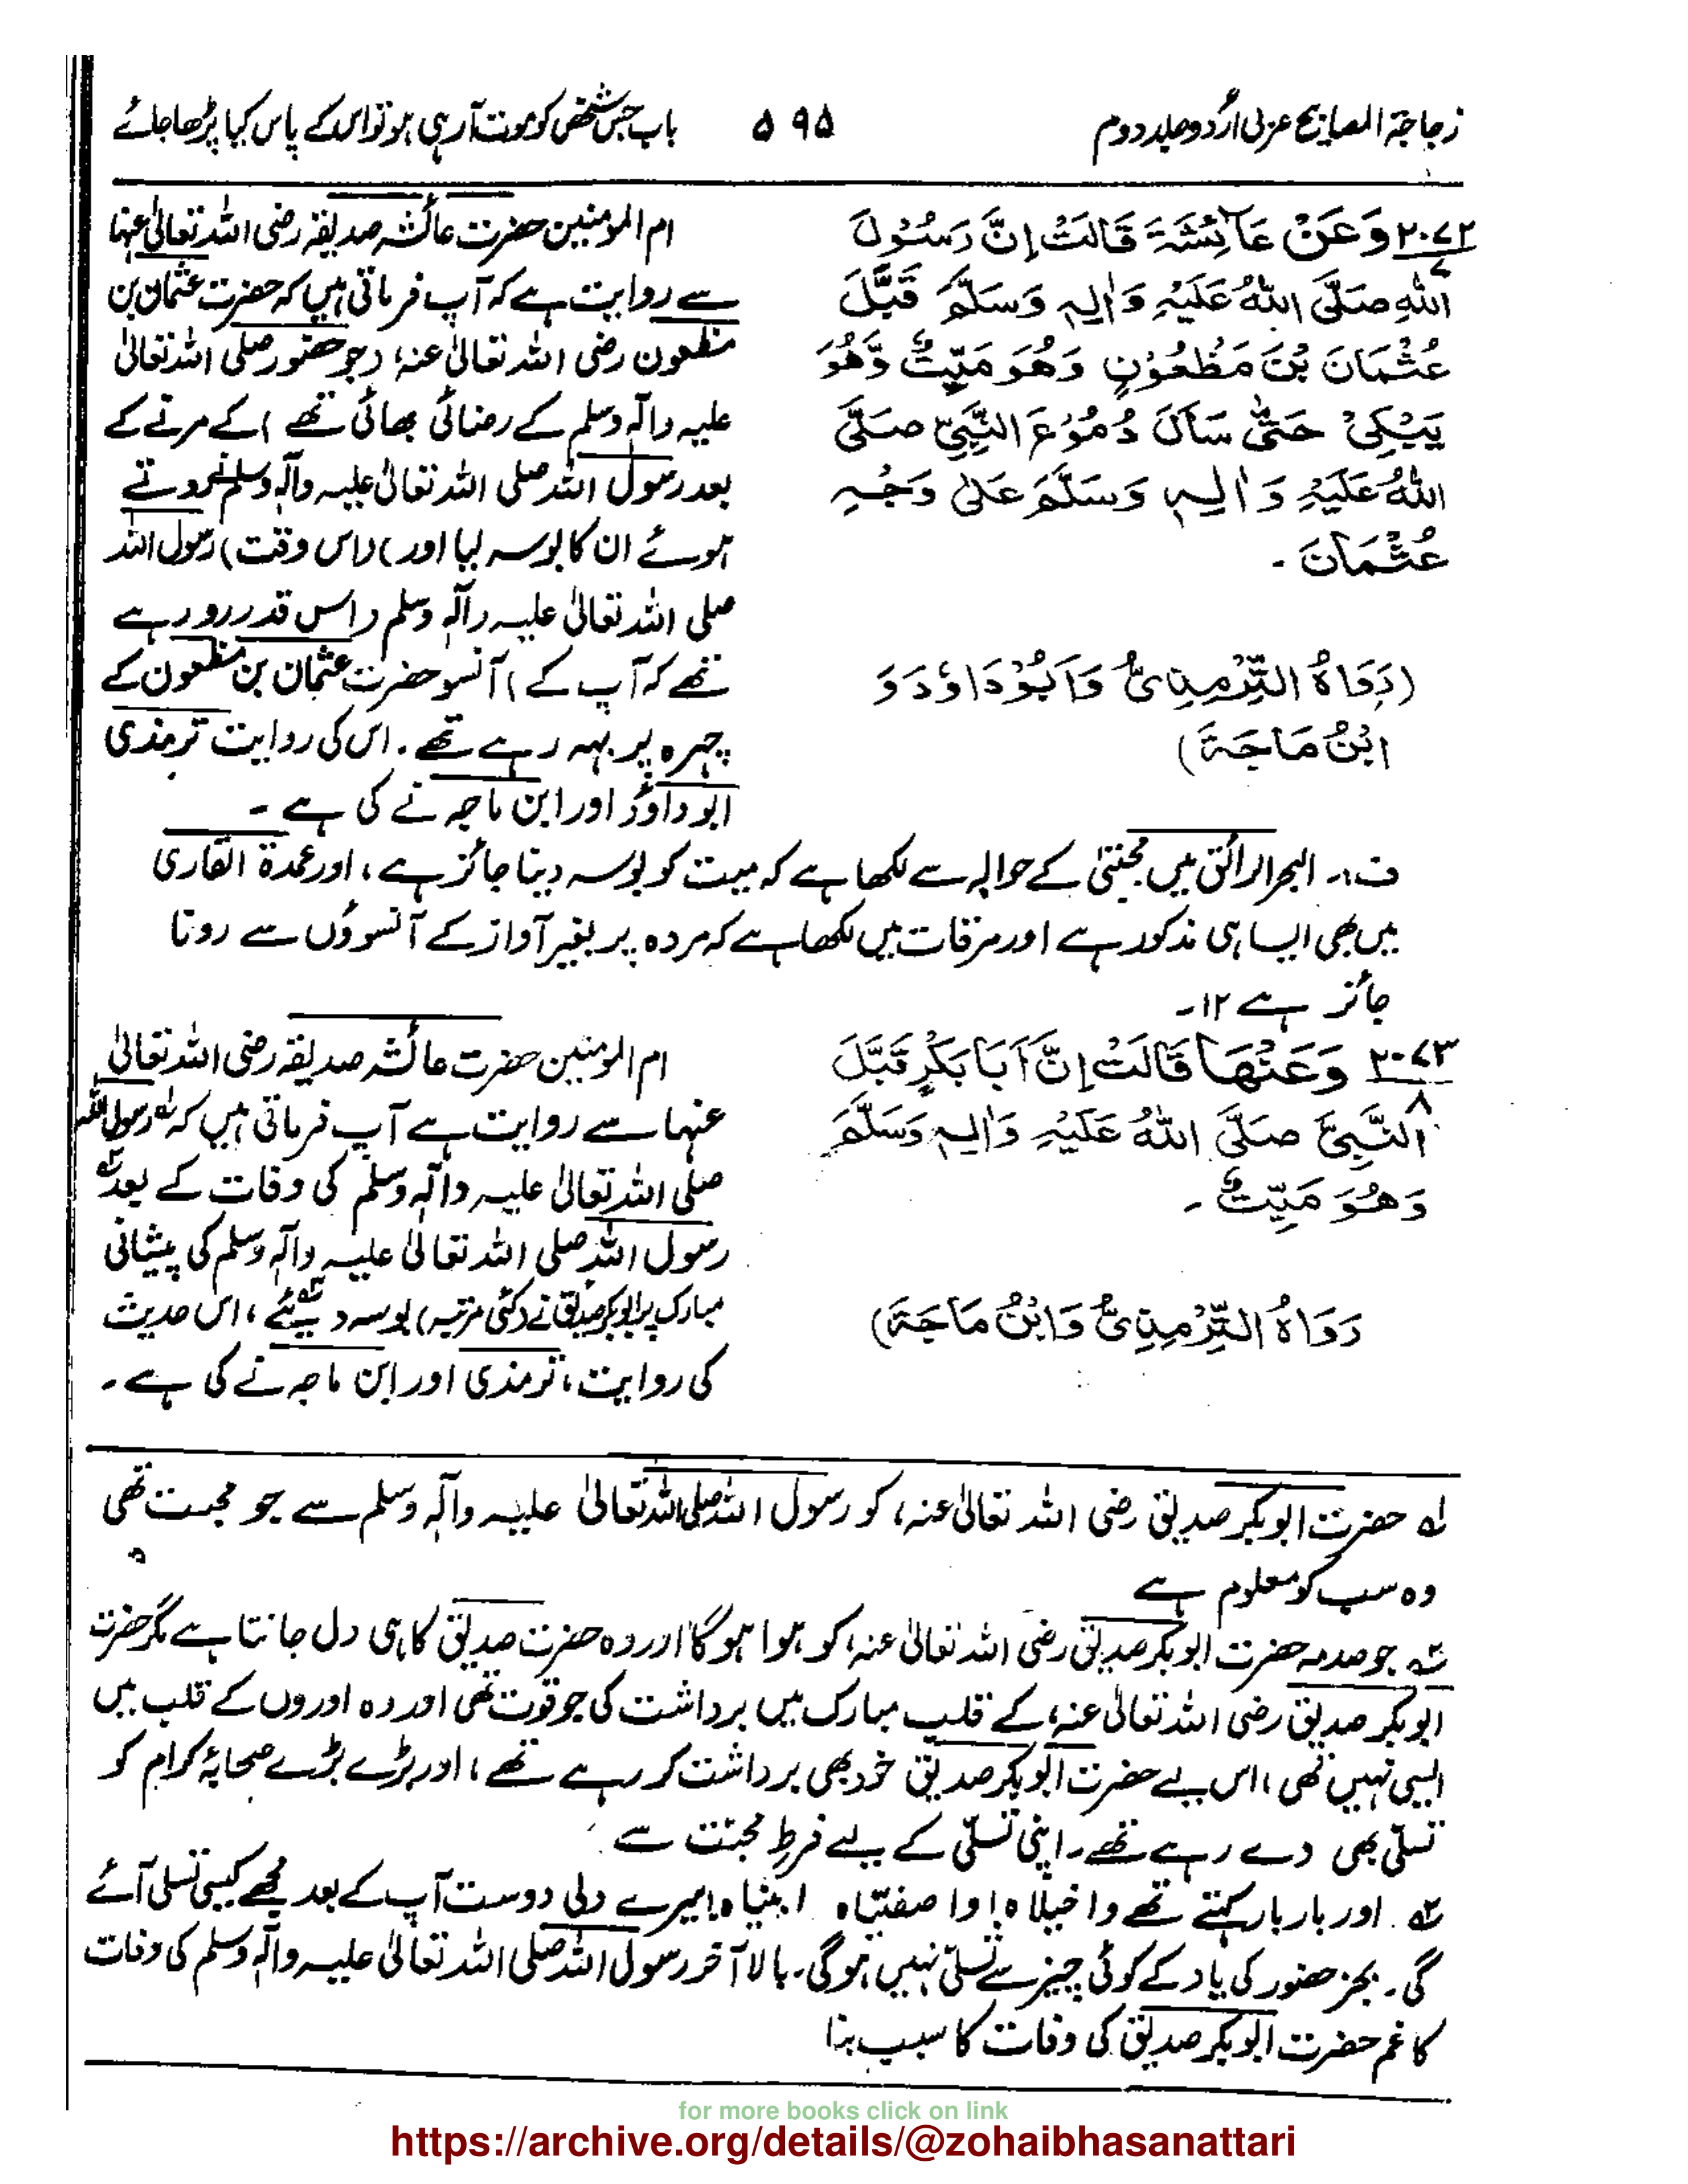 زجاجۃ المصابیح عربی اُردو جلد دوم
۵۹۵
باب جس شخص کو موت آرہی ہو تو اس کے پاس کیا پڑھا جائے
۲۰۷۲ وَعَنْ عَائِشَةَ قَالَتْ اِنَّ رَسُوْلَ
۷
اللّٰهِ صَلَّى اللّٰهُ عَلَيْهِ وَاٰلِهٖ وَسَلَّمَ قَبَّلَ
عُثْمَانَ بْنَ مَظْعُوْنٍ وَهُوَ مَيِّتٌ وَّهُوَ
يَبْكِيْ حَتّٰى سَالَ دُمُوْعُ النَّبِيِّ صَلَّى
اللّٰهُ عَلَيْهِ وَاٰلِهٖ وَسَلَّمَ عَلٰى وَجْهِ
عُثْمَانَ ۔
(رَوَاهُ التِّرْمِذِيُّ وَاَبُوْدَاوٗدَ وَ
ابْنُ مَاجَةَ)
ام المومنین حضرت عائشہ صدیقہ رضی اللہ تعالیٰ عنہا
سے روایت ہے کہ آپ فرماتی ہیں کہ حضرت عثمان بن
مظعون رضی اللہ تعالیٰ عنہ، (جو حضور صلی اللہ تعالیٰ
علیہ وآلہٖ وسلم کے رضائی بھائی تھے) کے مرنے کے
بعد رسول اللہ صلی اللہ تعالیٰ علیہ وآلہٖ وسلم نے روتے
ہوئے ان کا بوسہ لیا اور (اس وقت) رسول اللہ
صلی اللہ تعالیٰ علیہ وآلہٖ وسلم (اس قدر رو رہے
تھے کہ آپ کے) آنسو حضرت عثمان بن مظعون کے
چہرہ پر بہہ رہے تھے۔ اس کی روایت ترمذی
ابو داؤد اور ابن ماجہ نے کی ہے ۔
ف۱۔ البحر الرائق میں مجتبیٰ کے حوالہ سے لکھا ہے کہ میت کو بوسہ دینا جائز ہے، اور عمدۃ القاری
میں بھی ایسا ہی مذکور ہے اور مرقات میں لکھا ہے کہ مردہ پر بغیر آواز کے آنسوؤں سے رونا
جائز ہے ۱۲۔
۲۰۷۳ وَعَنْهَا قَالَتْ اِنَّ اَبَا بَكْرٍ قَبَّلَ
۸
النَّبِيَّ صَلَّى اللّٰهُ عَلَيْهِ وَاٰلِهٖ وَسَلَّمَ
وَهُوَ مَيِّتٌ ۔
رَوَاهُ التِّرْمِذِيُّ وَابْنُ مَاجَةَ)
ام المومنین حضرت عائشہ صدیقہ رضی اللہ تعالیٰ
عنہا سے روایت ہے آپ فرماتی ہیں کہ ۱؎ رسول اللہ
صلی اللہ تعالیٰ علیہ وآلہٖ وسلم کی وفات کے بعد ۲؎
رسول اللہ صلی اللہ تعالیٰ علیہ وآلہٖ وسلم کی پیشانی
مبارک پر ابوبکر صدیق نے (کئی مرتبہ) بوسہ دیئے ۳؎، اس حدیث
کی روایت، ترمذی اور ابن ماجہ نے کی ہے۔
۱؎ حضرت ابوبکر صدیق رضی اللہ تعالیٰ عنہ، کو رسول اللہ صلی اللہ تعالیٰ علیہ وآلہٖ وسلم سے جو محبت تھی
وہ سب کو معلوم ہے
۲؎ جو صدمہ حضرت ابوبکر صدیق رضی اللہ تعالیٰ عنہ، کو ہوا ہوگا اور وہ حضرت صدیق کا ہی دل جانتا ہے مگر حضرت
ابوبکر صدیق رضی اللہ تعالیٰ عنہ، کے قلب مبارک میں برداشت کی جو قوت تھی اور وہ اوروں کے قلب میں
ایسی نہیں تھی، اس لیے حضرت ابوبکر صدیق خود بھی برداشت کر رہے تھے، اور بڑے بڑے صحابۂ کرام کو
تسلّی بھی دے رہے تھے۔ اپنی تسلّی کے لیے فرطِ محبّت سے
۳؎ ۔ اور بار بار کہتے تھے واخیلاہ! وا صفیّاہ انبیاہ! میرے دلی دوست آپ کے بعد مجھے کیسی تسلی آئے
گی۔ بجز حضور کی یاد کے کوئی چیز سے تسلّی نہیں ہوگی۔ بالا آخر رسول اللہ صلی اللہ تعالیٰ علیہ وآلہٖ وسلم کی وفات
کا غم حضرت ابوبکر صدیق کی وفات کا سبب بنا
for more books click on link
https://archive.org/details/@zohaibhasanattari